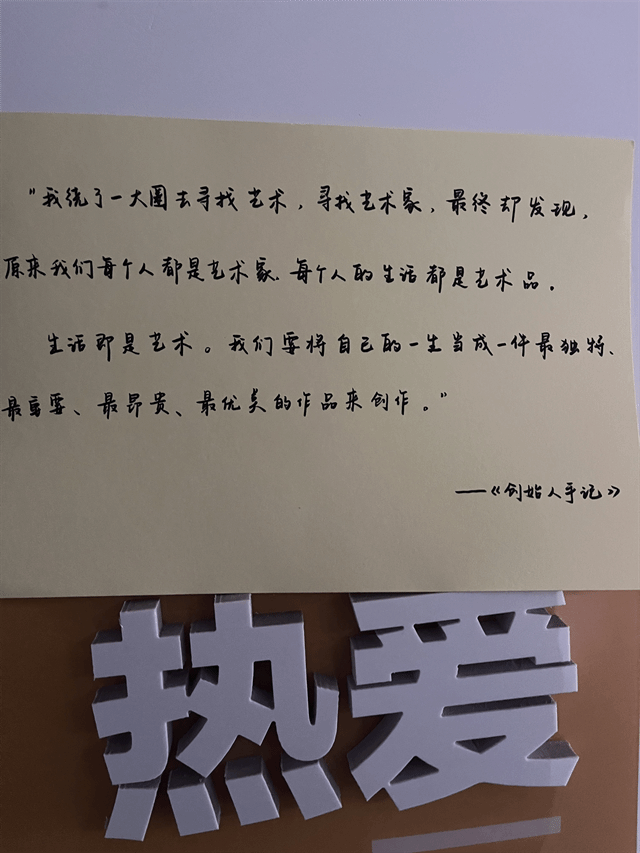 "我绕了一大圈去寻找艺术，寻找艺术家，最终却发现，
原来我们每个人都是艺术家、每个人的生活都是艺术品。
生活即是艺术。我们要将自己的一生当成一件最独特、
最重要、最昂贵、最优美的作品来创作。"
——《创始人手记》
热爱